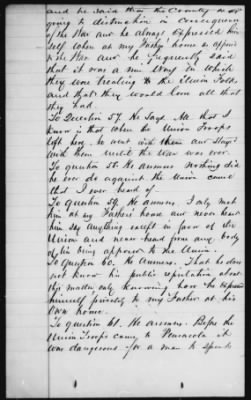 and he said that the Country was
going to distruction in consequence
of the War and he always expressed him
self when at my Father's home as opposed
to the War and he frequently said
that it was a mean Way in which
they were treating the Union Folks
and that they would loose all that
they had.
To Question 57. He Says. All that I
know is that when the Union Troops
left here he went with them and Stayed
with them until the War was over.
To question 58. He answers. Nothing did
he ever do against the Union cause
that I ever heard of.
To question 59. He answers. I only met
him at my Fathers' house and never heard
him Say anything except in favor of the
Union and never heard from any body
of his being opposed to the Union.
To Question 60. He Answers. That he does
not know his public reputation about
this matter only knowing how he expressed
himself privately to my Father at his
own home.
To question 61. He answers. Before the
Union Troops came to Pensacola it
was dangerous for a man to speak